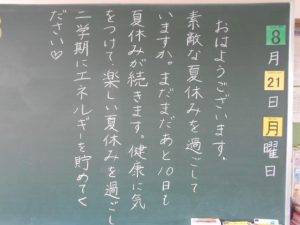 8月21日月曜日
おはようございます。
素敵な夏休みを過ごして
いますか。まだまだあと10日も
夏休みが続きます。健康に気
をつけて楽しい夏休みを過ごし
二学期にエネルギーを貯めてく
ださい♡